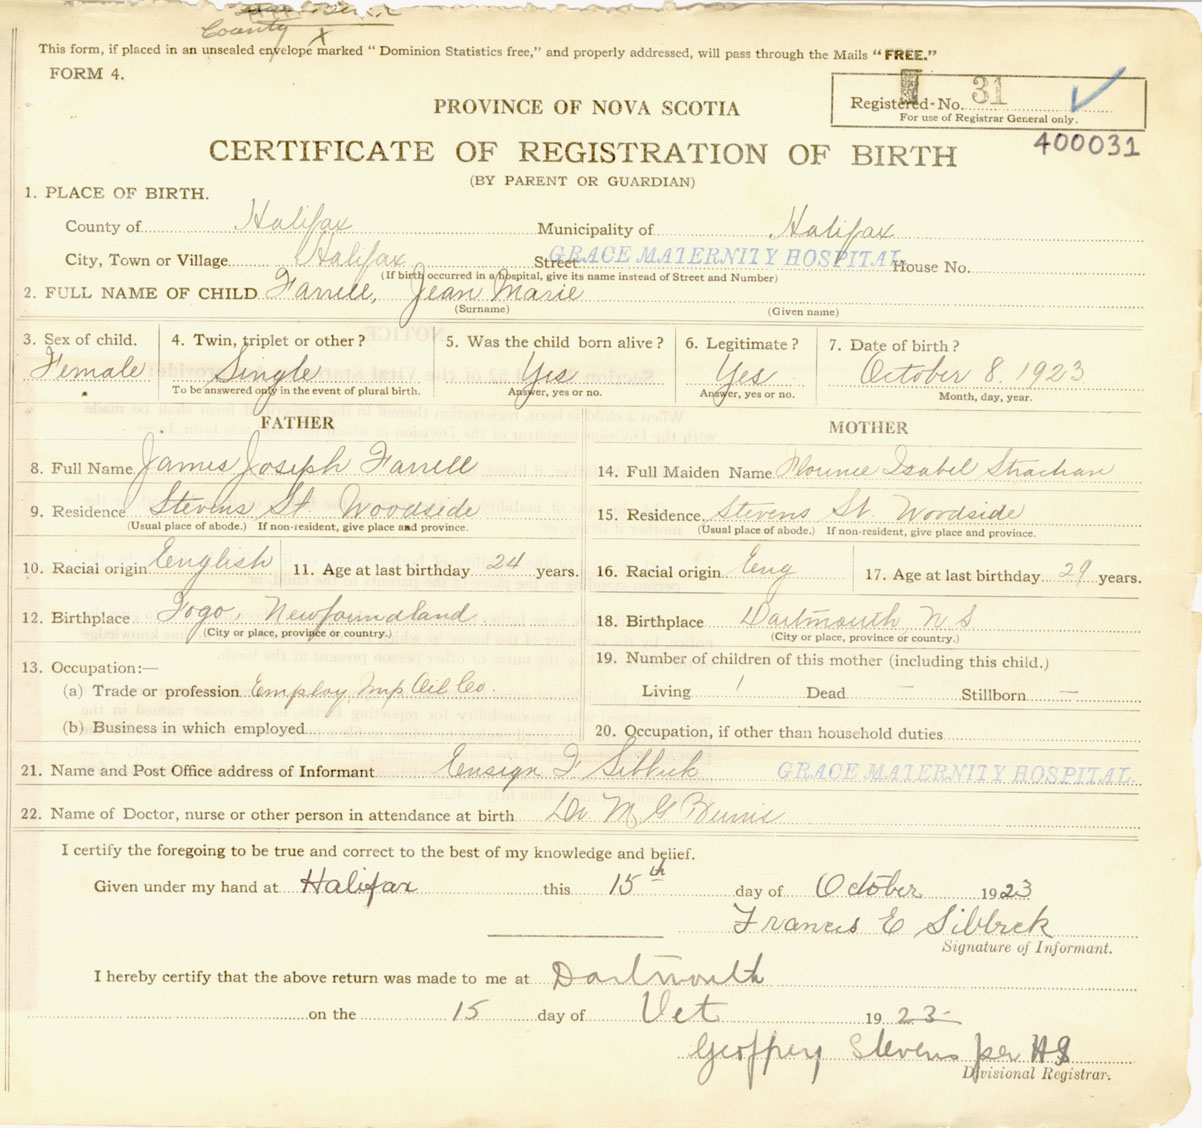 County X
This form, if placed in an unsealed envelope marked “Dominion Statistics free,” and properly addressed, will pass through the Mails “FREE.”
FORM 4.
Registered No. 31
For use of Registrar General only.
400031
PROVINCE OF NOVA SCOTIA
CERTIFICATE OF REGISTRATION OF BIRTH
(BY PARENT OR GUARDIAN)
1. PLACE OF BIRTH.
County of Halifax Municipality of Halifax
City, Town or Village Halifax Street GRACE MATERNITY HOSPITAL House No.
(If birth occurred in a hospital, give its name instead of Street and Number)
2. FULL NAME OF CHILD Farrell, Jean Marie
(Surname) (Given name)
3. Sex of child. 4. Twin, triplet or other? 5. Was the child born alive? 6. Legitimate? 7. Date of birth?
Female Single Yes Yes October 8. 1923
To be answered only in the event of plural birth. Answer, yes or no. Answer, yes or no. Month, day, year.
FATHER MOTHER
8. Full Name James Joseph Farrell 14. Full Maiden Name Florence Isabel Strachan
9. Residence Stevens St. Woodside 15. Residence Stevens St. Woodside
(Usual place of abode.) If non-resident, give place and province. (Usual place of abode.) If non-resident, give place and province.
10. Racial origin English 11. Age at last birthday 24 years. 16. Racial origin Eng 17. Age at last birthday 29 years.
12. Birthplace Fogo, Newfoundland 18. Birthplace Dartmouth N S
(City or place, province or country.) (City or place, province or country.)
13. Occupation:— 19. Number of children of this mother (including this child.)
(a) Trade or profession Employ, Imp Oil Co. Living 1 Dead — Stillborn —
(b) Business in which employed 20. Occupation, if other than household duties
21. Name and Post Office address of Informant Ensign F Sibbick GRACE MATERNITY HOSPITAL.
22. Name of Doctor, nurse or other person in attendance at birth Dr M G Burris
I certify the foregoing to be true and correct to the best of my knowledge and belief.
Given under my hand at Halifax this 15th day of October 1923
Francis E Sibbick
Signature of Informant.
I hereby certify that the above return was made to me at Dartmouth
on the 15 day of Oct 1923
Geoffrey Stevens per HS
Divisional Registrar.